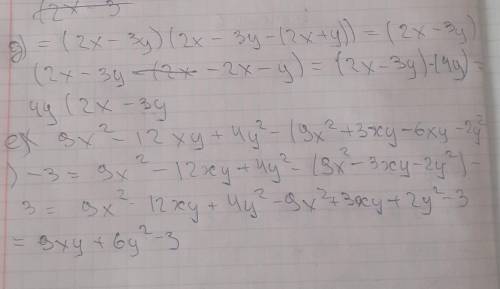 (2x-3
д) = (2x-3y)(2x-3y-(2x+y)) = (2x-3y)
(2x-3y -2x-y) = (2x-3y)-(4y) =
4y(2x-3y
е) 9x²-12xy+4y²-(9x²+3xy-6xy-2y²
)-3 = 9x²-12xy+4y²-(9x²-3xy-2y²)-
3 = 9x²-12xy+4y²-9x²+3xy+2y²-3
= 9xy+6y²-3